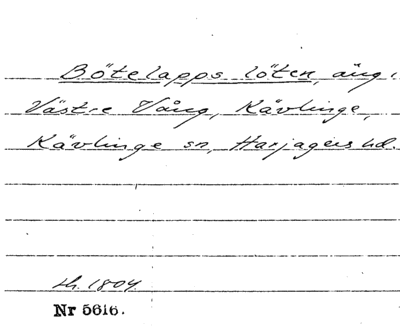 Bötelapps löten, äng i
Västre Vång, Kävlinge,
Kävlinge sn, Harjagers hd.
sh. 1804
Nr 5616.